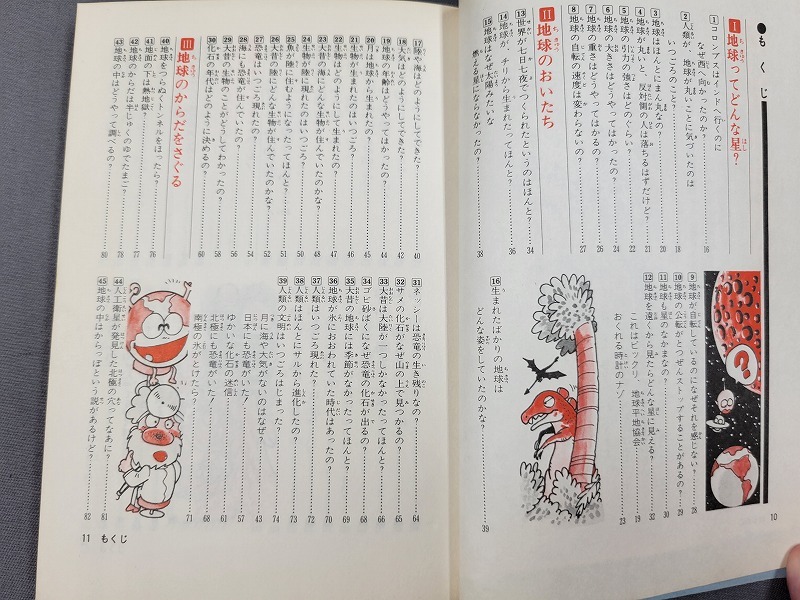 ●もくじ
Ⅰ 地球ってどんな星?
1 コロンブスはインドへ行くのに
なぜ西へ向かったのか? 16
2 人類が、地球が丸いことに気づいたのは
いつごろのこと? 18
3 地球はほんとにまんまるなの? 20
4 地球が丸いと、反対側の人は落ちるはずだけど? 21
5 地球の引力の強さはどのくらい? 22
6 地球の大きさはどうやってはかった? 24
7 地球の重さはどうやってはかるの? 26
8 地球の自転の速度は変わらないの? 27
9 地球が自転しているのになぜそれを感じない? 28
10 地球の公転がとつぜんストップすることがあるの? 29
11 地球も星のなかまなの? 30
12 地球を遠くから見たらどんな星に見える? 32
これはビックリ、地球平地協会 19
おくれる時計のナゾ 23
?
Ⅱ 地球のおいたち
13 世界が七日七夜でつくられたというのはほんと? 34
14 地球が、チリから生まれたってほんと? 36
15 地球はなぜ太陽みたいな
燃える星にならなかったの? 38
16 生まれたばかりの地球は
どんな姿をしていたのかな? 39
10
17 陸や海はどのようにしてできた? 40
18 大気はどのようにしてできた? 42
19 地球の年齢はどうやってはかったの? 44
20 月は地球から生まれたの?
21 生物が生まれたのはいつごろ?
22 生物はどのようにして生まれたの?
23 大昔の海にどんな生物が住んでいたのかな?
24 生物が陸に現れたのはいつごろ?
25 魚が陸に住むようになったってほんと?
26 大昔の陸にどんな生物が住んでいたのかな?
27 恐竜はいつごろ現れたの?
28 海にも恐竜が住んでいた?
29 大昔の生物のことがどうしてわかったの? 58
30 化石の年代はどのように決めるの? 60
31 ネッシーは恐竜の生き残りなの? 64
32 サメの化石がなぜ山の上で見つかるの? 65
33 大昔は大陸が一つしかなかったってほんと? 66
34 ゴビ砂ばくになぜ恐竜の化石が出るの? 68
35 大昔の地球には季節がなかったってほんと? 69
36 地球が氷におおわれていた時代はあったの? 70
37 人類はいつごろ現れた? 72
38 人類はほんとにサルから進化したの? 73
39 人類の文明はいつごろはじまった? 74
月に海や大気がないのはなぜ? 43
日本にも恐竜がいた! 57
ゆかいな化石の迷信 61
北極にも恐竜がいた! 68
南極の氷がとけたら? 71
Ⅲ 地球のからだをさぐる
40 地球をつらぬくトンネルをほったら? 76
41 地面の下は熱地獄? 77
42 地球のからだは半じゅくのゆでたまご? 78
43 地球の中はどうやって調べるの? 80
44 人工衛星が発見した北極の穴ってなあに? 81
45 地球の中はからっぽという説があるけど? 82
11 もくじ